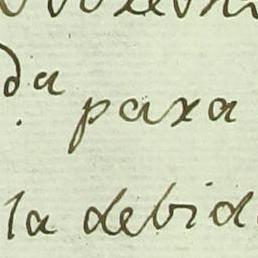 d.ª para
la debid